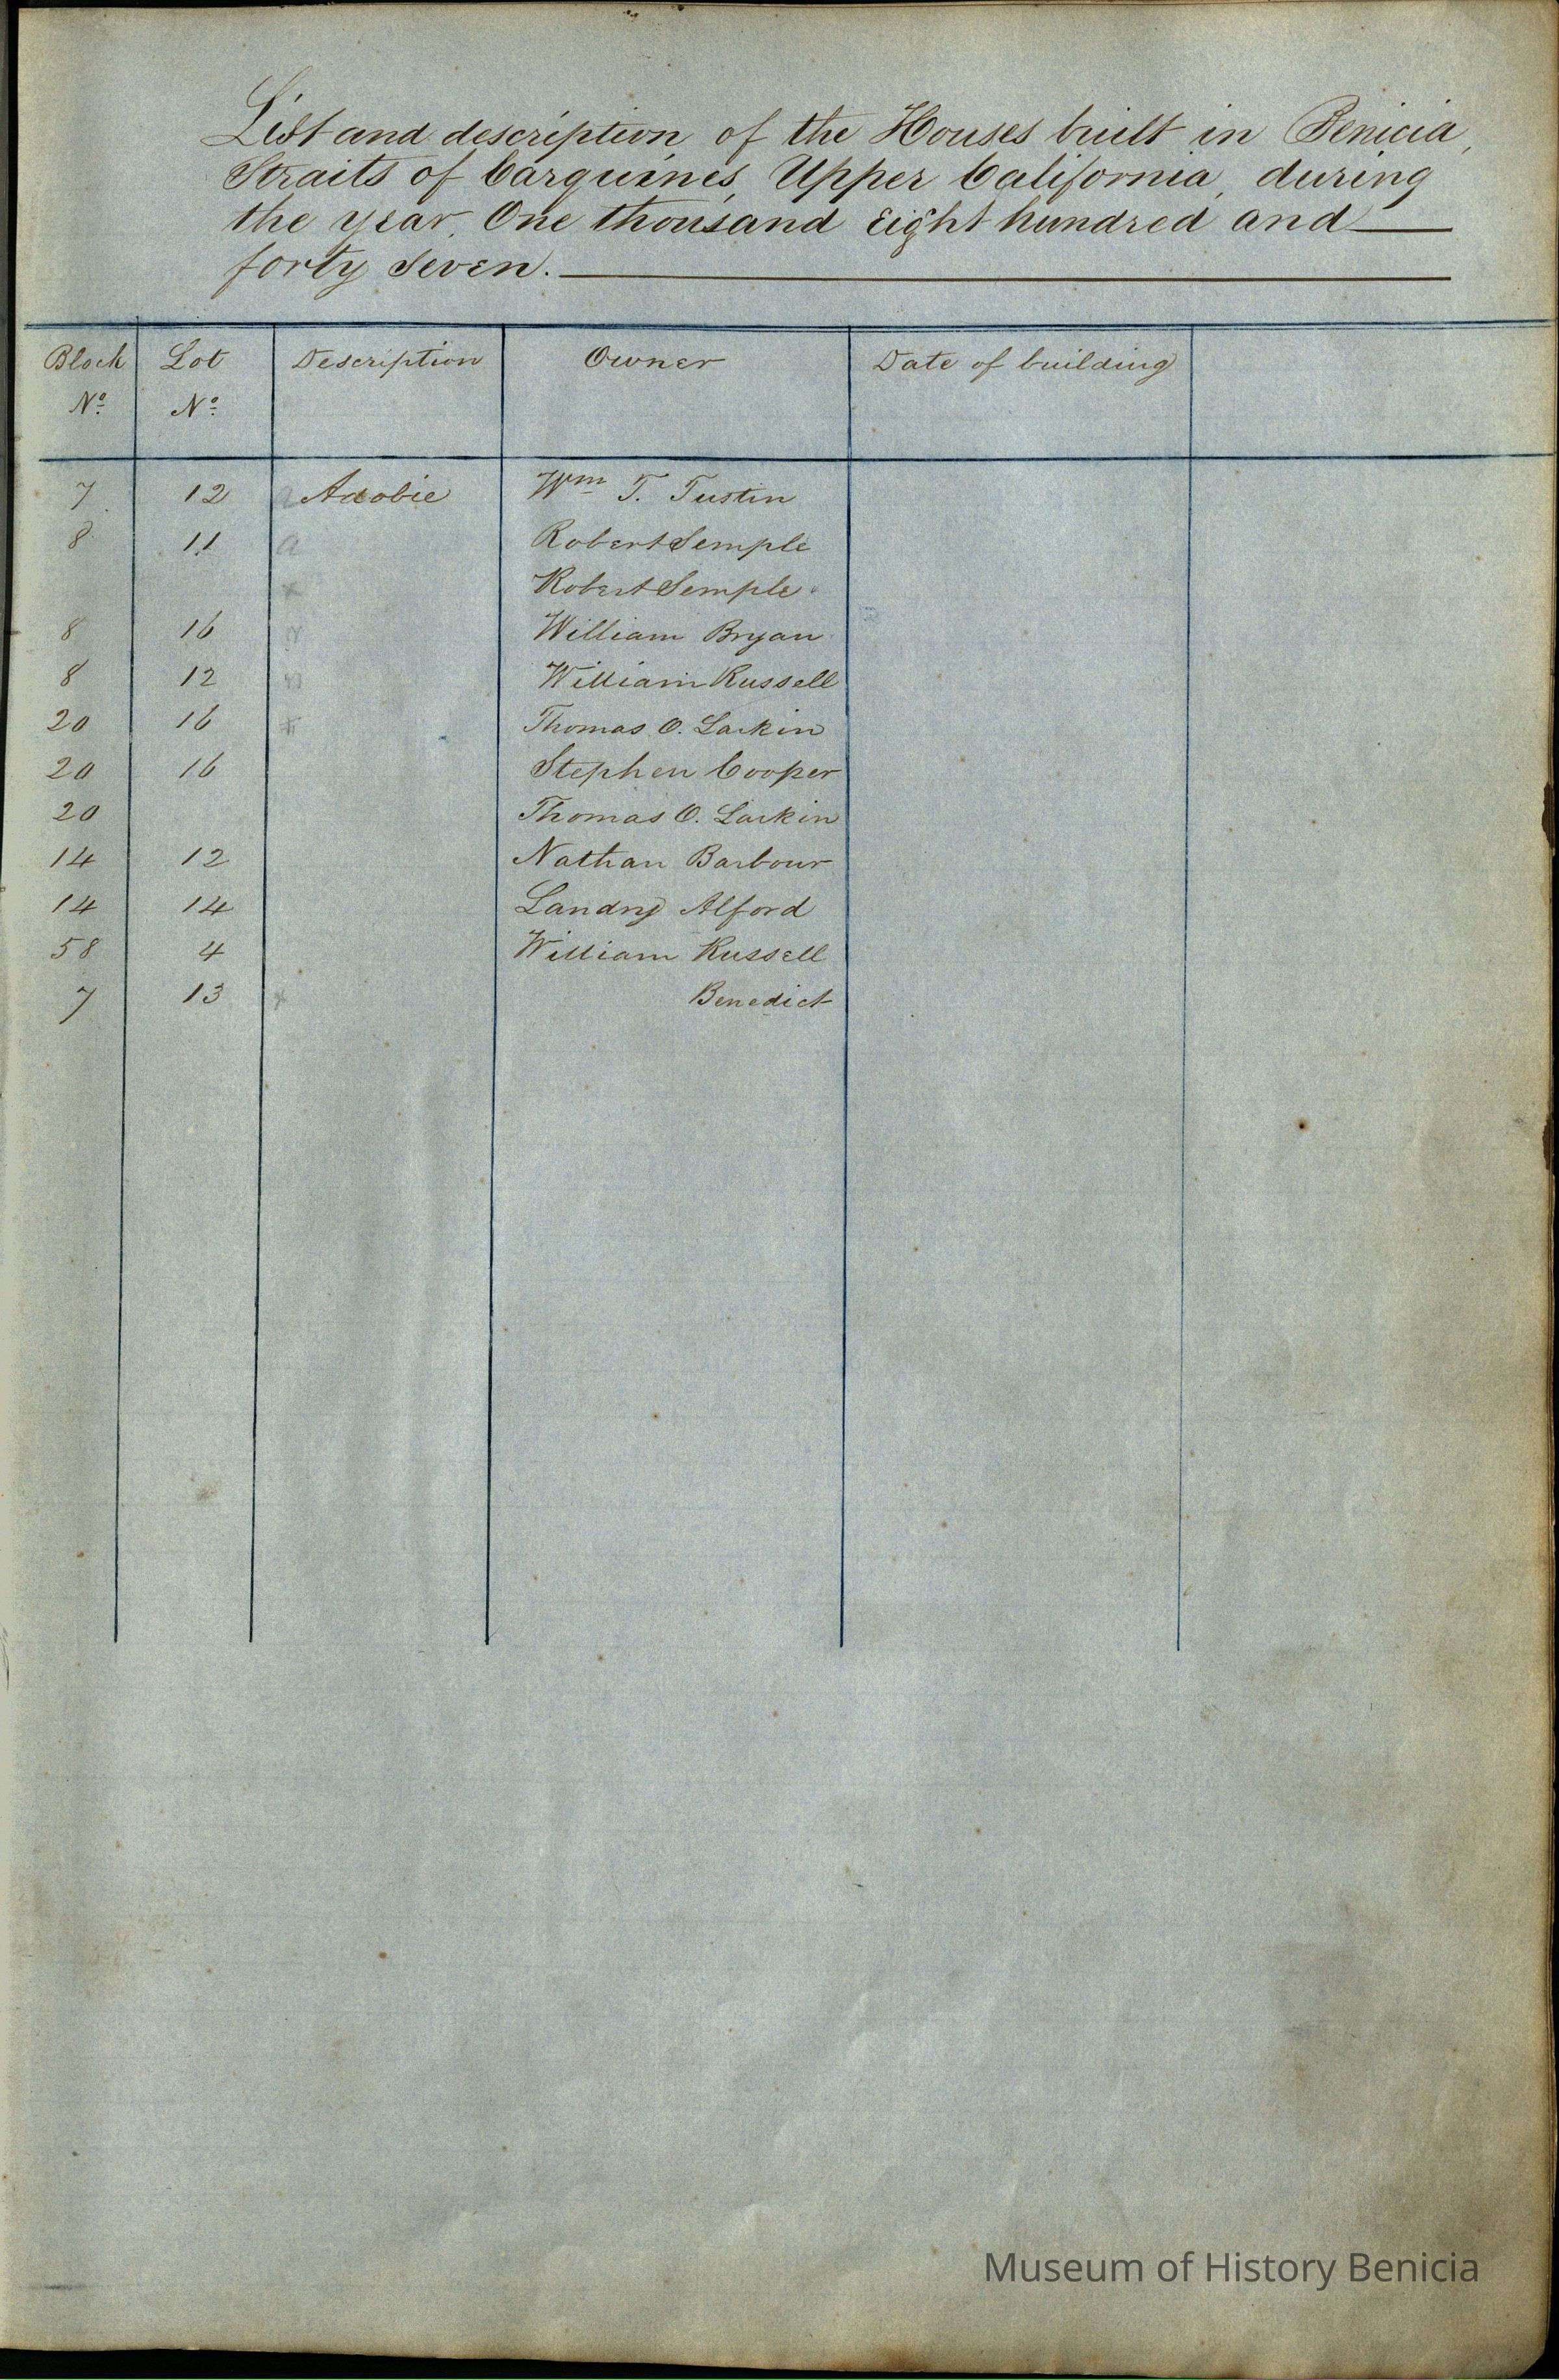 List and description of the Houses built in Benicia,
Straits of Carquines, Upper California, during
the year, One thousand Eight hundred and
forty Seven.
Block Lot Description Owner Date of building
No No
7 12 a Adobie Wm T. Tustin
8 11 a Robert Semple
x Robert Semple
8 16 William Bryan
8 12 William Russell
20 16 Thomas O. Larkin
20 16 Stephen Cooper
20 Thomas O. Larkin
14 12 Nathan Barbour
14 14 Landny Alford
58 4 William Russell
7 13 x Benedict
Museum of History Benicia